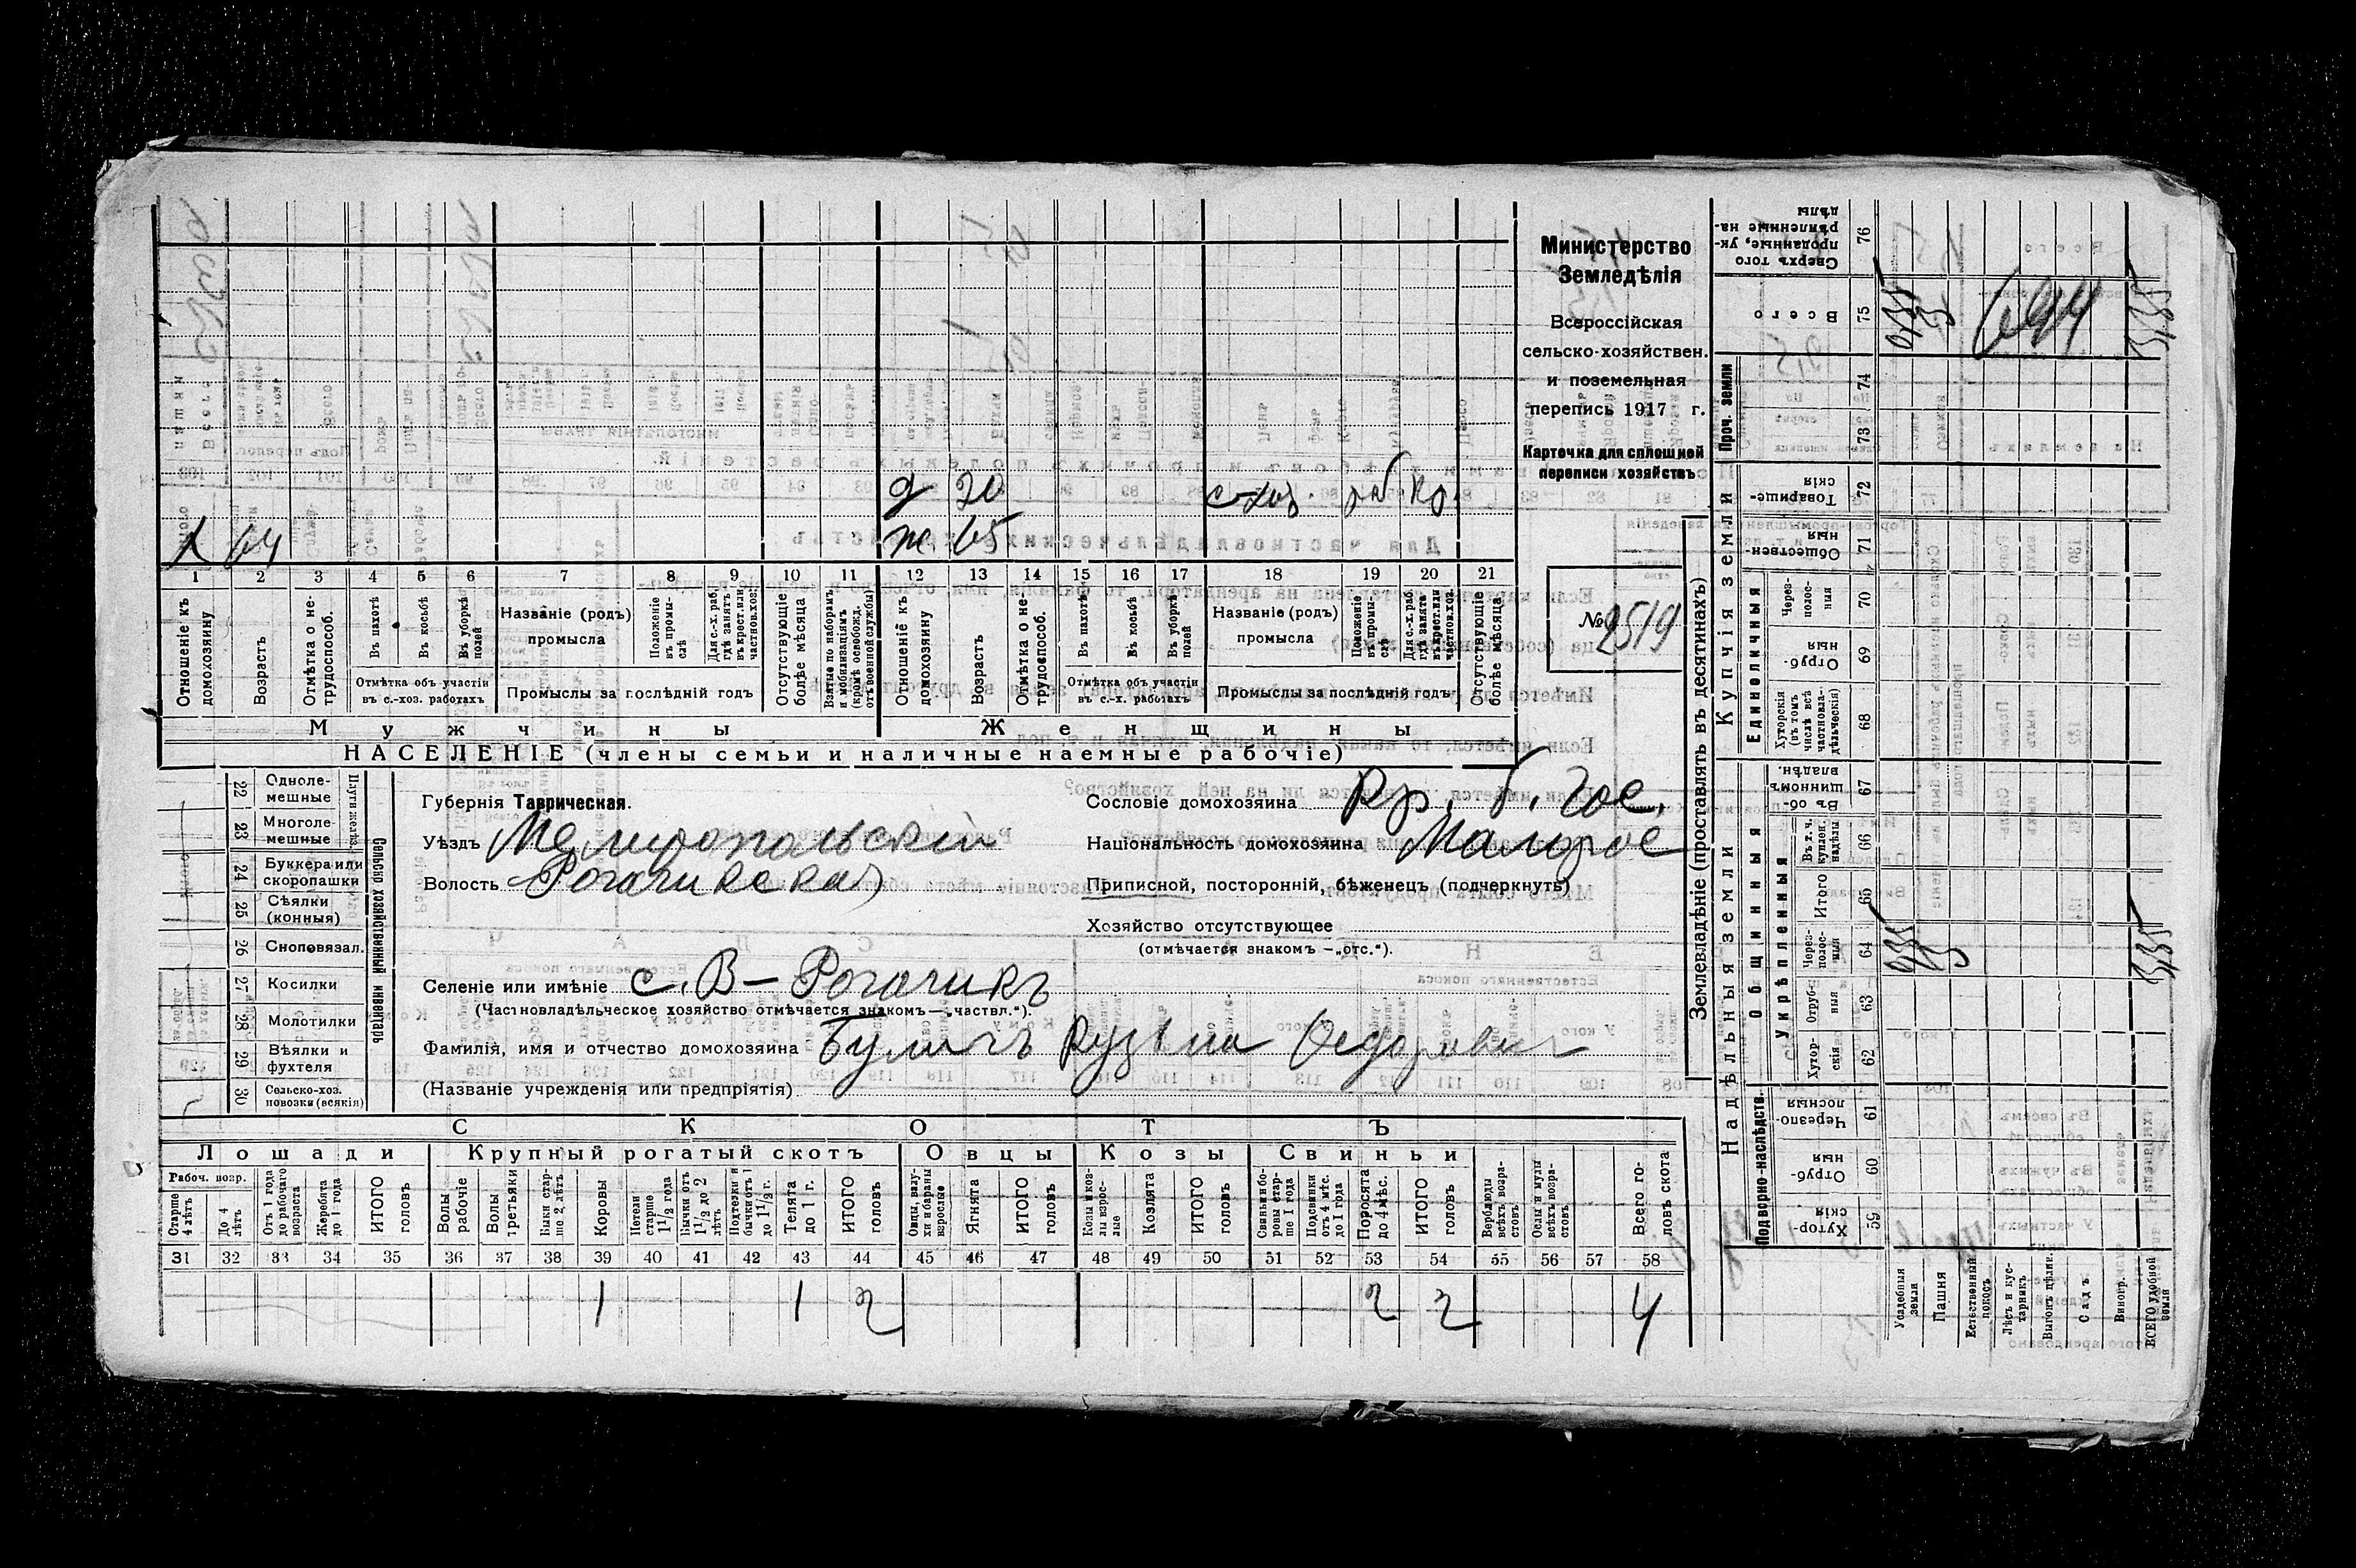 Министерство
Земледѣлія
Всероссійская
сельско-хозяйствен.
и поземельная
перепись 1917 г.
Карточка для сплошной
переписи хозяйствъ
№ 2519
д 20 с-хоз. раб кр.
х 64 ж 65
1 2 3 4 5 6 7 8 9 10 11 12 13 14 15 16 17 18 19 20 21
Отношеніе къ домохозяину
Возрастъ
Отмѣтка о нетрудоспособ.
Въ пахотѣ
Въ косьбѣ
Въ уборкѣ полей
Отмѣтка объ участіи въ с.-хоз. работахъ
Названіе (родъ) промысла
Положеніе въ промыслѣ
Для с.-х. раб. гдѣ занятъ: въ крест. или частнов. хоз.
Промыслы за послѣдній годъ
Отсутствующіе болѣе мѣсяца
Взятые по наборамъ и мобилизаціямъ (кромѣ освобожд. отъ военной службы)
Отношеніе къ домохозяину
Возрастъ
Отмѣтка о нетрудоспособ.
Въ пахотѣ
Въ косьбѣ
Въ уборкѣ полей
Отмѣтка объ участіи въ с.-х. работахъ
Названіе (родъ) промысла
Положеніе въ промыслѣ
Для с.-х. раб. гдѣ занята: въ крест. или частнов. хоз.
Промыслы за послѣдній годъ
Отсутствующіе болѣе мѣсяца
Мужчины Женщины
НАСЕЛЕНІЕ (члены семьи и наличные наемные рабочіе)
Сельско хозяйственный инвентарь
Плуги желѣз.
22 Одноле-мешные
23 Многоле-мешные
24 Буккера или скоропашки
25 Сѣялки (конныя)
26 Сноповязал.
27 Косилки
28 Молотилки
29 Вѣялки и фухтеля
30 Сельско-хоз. повозки (всякія)
Губернія Таврическая.
Уѣздъ Мелитопольскій
Волость Рогачикская
Селеніе или имѣніе с. В-Рогачикъ
(Частновладѣльческое хозяйство отмѣчается знакомъ—„частвл.“).
Фамилія, имя и отчество домохозяина Булачъ Кузьма Федорович
(Названіе учрежденія или предпріятія)
Сословіе домохозяина Кр. б. гос.
Національность домохозяина Малорос
Приписной, посторонній, бѣженецъ (подчеркнуть)
Хозяйство отсутствующее
(отмѣчается знакомъ —„отс.“).
СКОТЪ
Лошади Крупный рогатый скотъ Овцы Козы Свиньи
Рабоч. возр.
Старше 4 лѣтъ
До 4 лѣтъ
Отъ 1 года до рабочаго возраста
Жеребята до 1 года
ИТОГО головъ
Волы рабочіе
Волы третьяки
Быки старше 2 лѣтъ
Коровы
Нетели старше 1 1/2 года
Бычки отъ 1 1/2 до 2 лѣтъ
Подтелки и бычки отъ 1 до 1 1/2 г.
Телята до 1 г.
ИТОГО головъ
Овцы, валухи и бараны взрослые
Ягнята
ИТОГО головъ
Козы и козлы взрослые
Козлята
ИТОГО головъ
Свиньи и боровы старше 1 года
Подсвинки отъ 4 мѣс. до 1 года
Поросята до 4 мѣс.
ИТОГО головъ
Верблюды всѣхъ возрастовъ
Ослы и мулы всѣхъ возрастовъ
Всего головъ скота
31 32 33 34 35 36 37 38 39 40 41 42 43 44 45 46 47 48 49 50 51 52 53 54 55 56 57 58
1 1 2 2 2 4
Землевладѣніе (проставлять въ десятинахъ)
Надѣльныя земли
Купчія земли
Проч. земли
Подворно-наслѣдств.
Общинныя
Укрѣпленныя
Единоличныя
Хуторскія 59
Отрубныя 60
Черезполосныя 61
Хуторскія 62
Отрубныя 63
Черезполосный 64
Итого 65
Въ т. ч. куплен. надѣлы 66
Въ общинномъ владѣн. 67
Хуторскія (въ томъ числѣ всѣ частновладѣльческія) 68
Отрубныя 69
Черезполосныя 70
Общественныя 71
Товарищескія 72
73
74
Всего 75
Сверхъ того проданные, укрѣпленные надѣлы 76
Усадебныя земля
Пашня
Естественный покосъ
Лѣсъ и кустарникъ
Выгонъ цѣлин.
Садъ.
Виногр.
ВСЕГО удобной земли